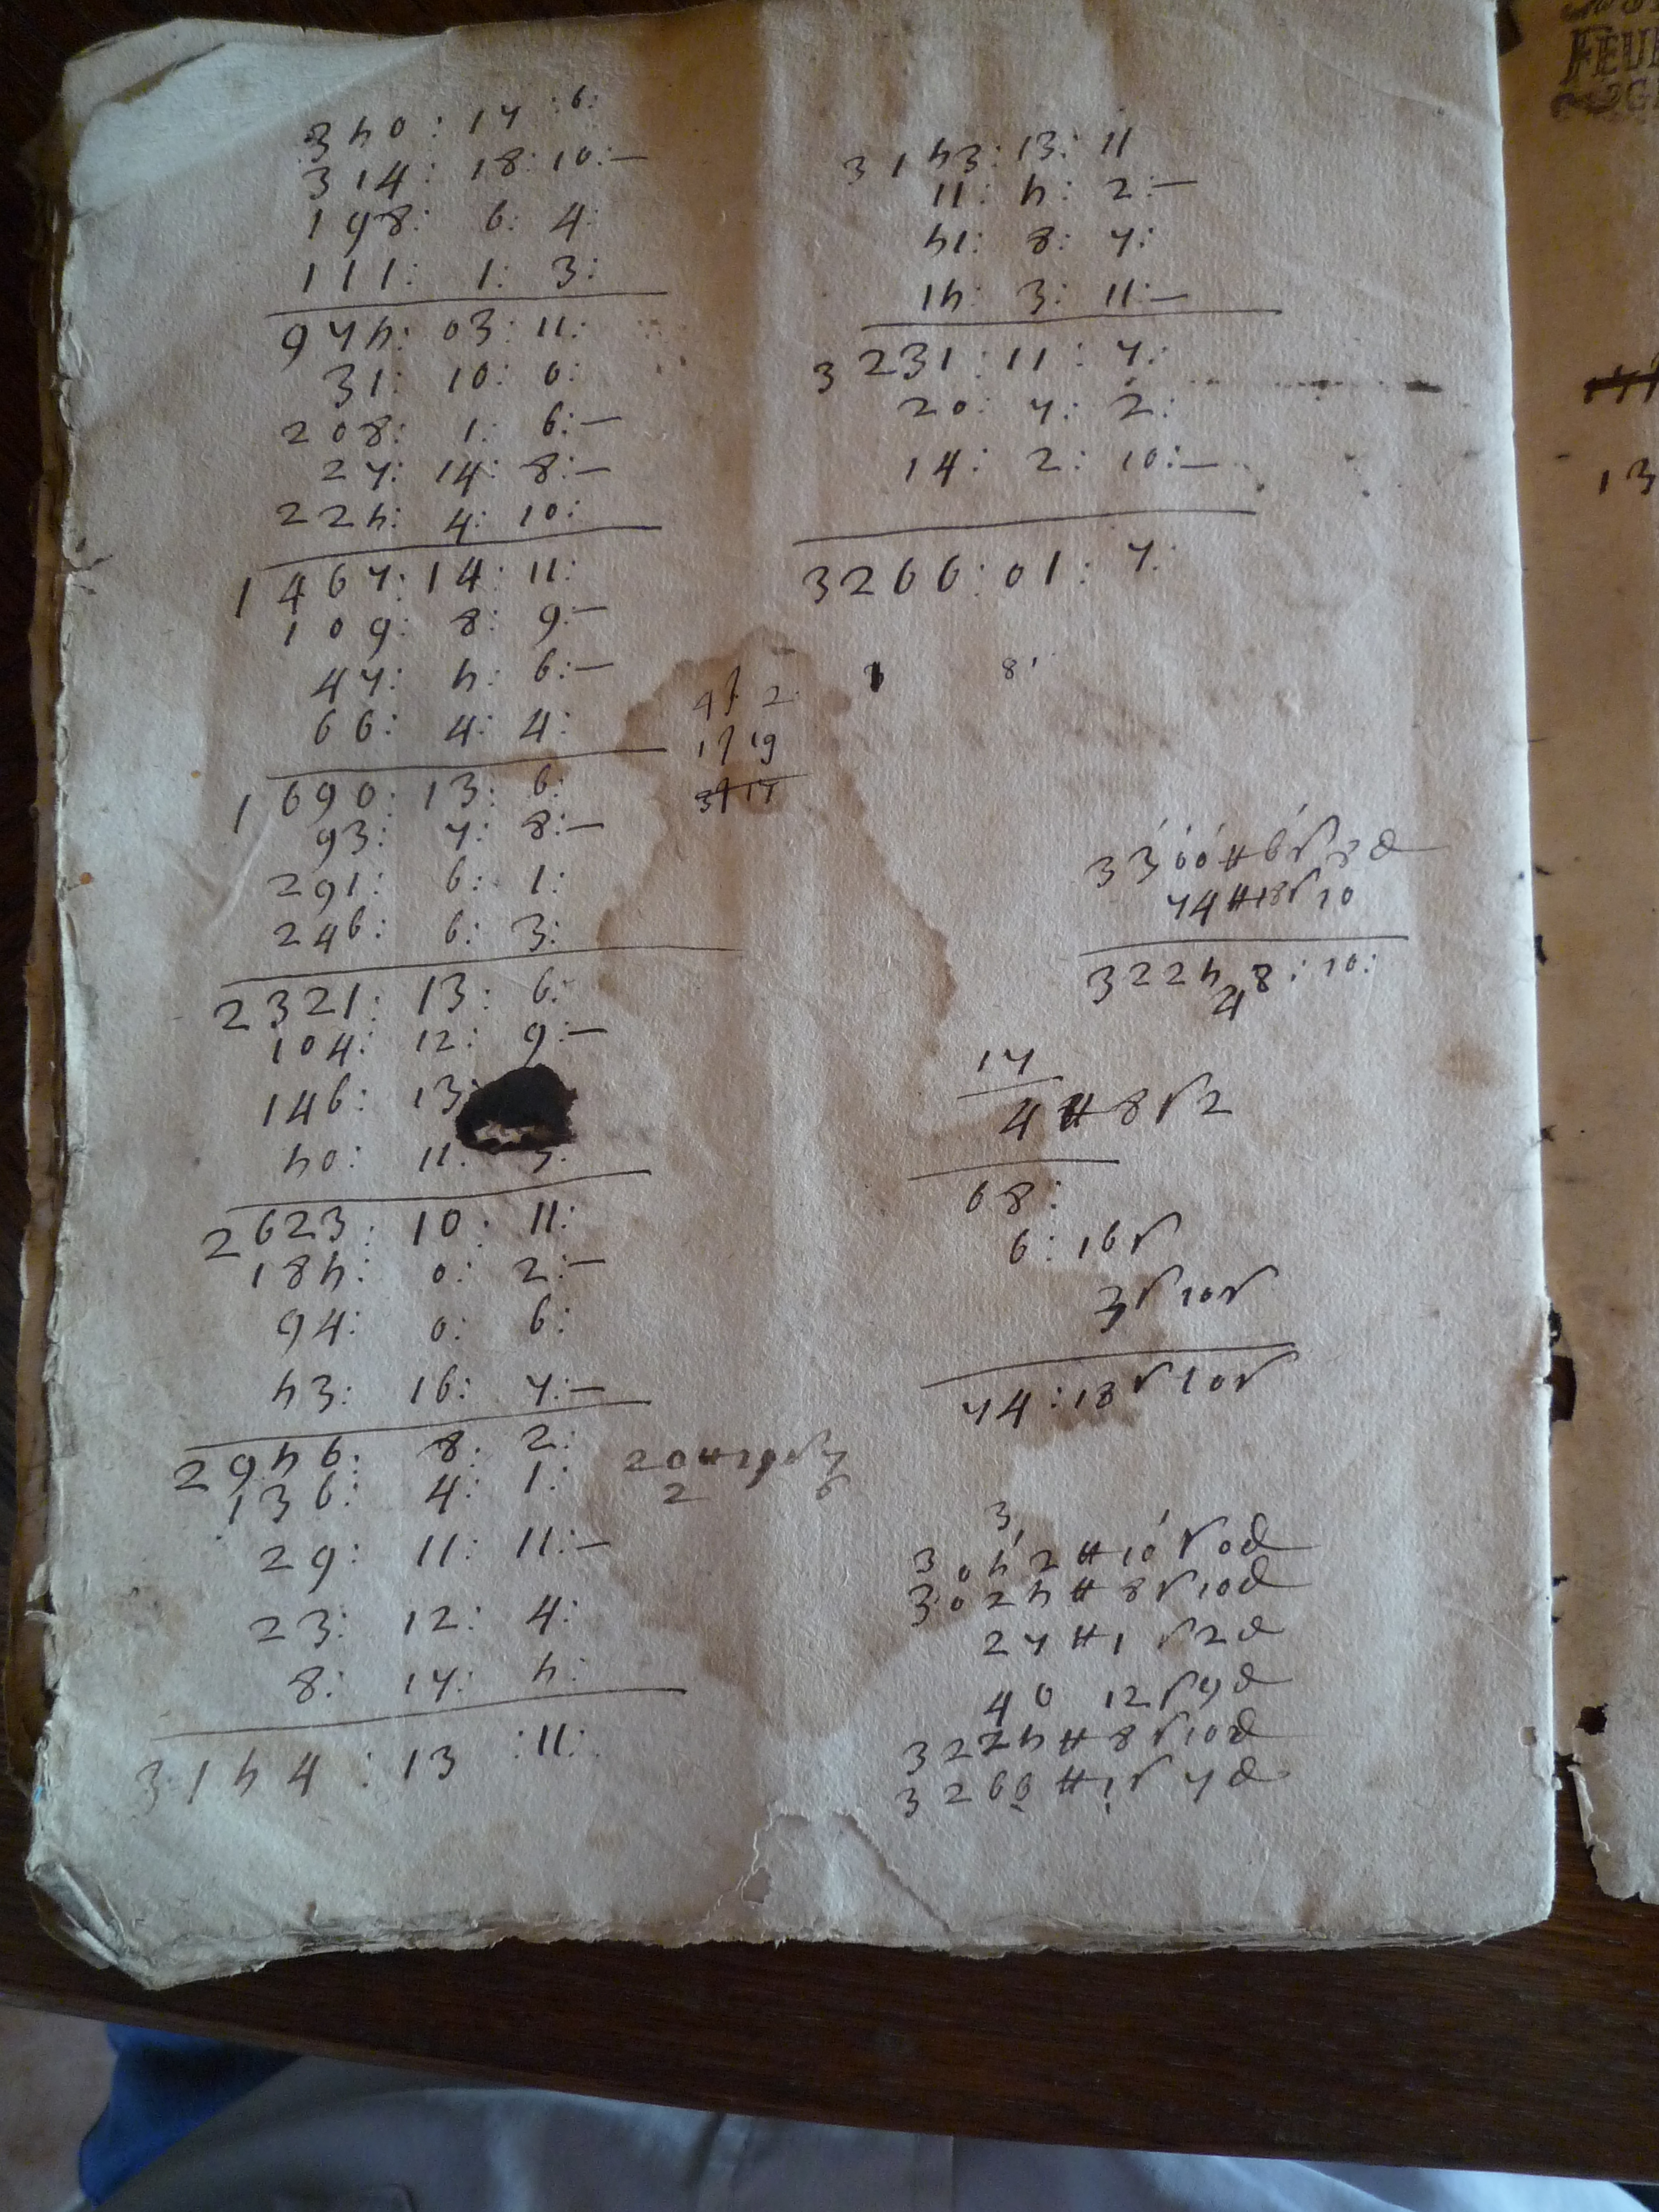 350:17:6:
314:18:10:—
198:6:4:
111:1:3:
975:03:11:
31:10:0:
208:1:6:—
27:14:8:—
225:4:10:
1467:14:11:
109:8:9:—
47:5:6:—
66:4:4:
1690:13:6:
93:7:8:—
291:6:1:
246:6:3:
2321:13:6:
104:12:9:—
146:13:
50:11:
2623:10:11:
185:0:2:—
94:0:6:
53:16:7:—
2956:8:2:
136:4:1:
29:11:11:—
23:12:4:
8:17:5:
3154:13:11:
3153:13:11
11:5:2:—
51:8:7:
15:3:11:—
3231:11:7:
20:7:2:
14:2:10:—
3266:01:7:
8
3300 # 6s 8d
74 # 18s 10
3225 8:10:
4
17
4 # 8s 2
68:
6:16s
3s 10s
74:18s 10s
3
3052 # 10s 0d
3025 # 8s 10d
27 # 1s 2d
40 12s 9d
3225 # 8s 10d
3266 # 1s 7d
13